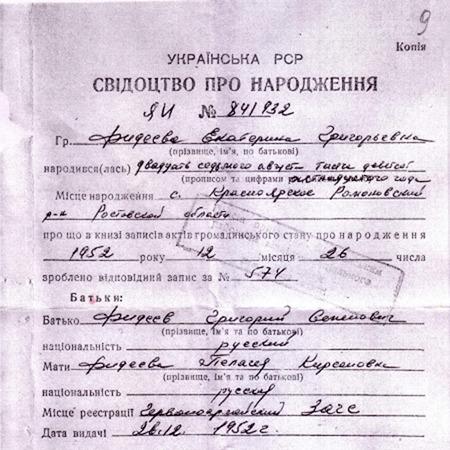 9
Копія
УКРАЇНСЬКА РСР
СВІДОЦТВО ПРО НАРОДЖЕННЯ
ЯИ № 841932
Гр. Фидеева Екатерина Григорьевна
(прізвище, ім'я, по батькові)
народився(лась) двадцать седьмого август тысяч девятсот
(прописом та цифрами года
Місце народження с. Красноярское Романовский
р-н Ростовской области
про що в книзі записів актів громадянського стану про народження
1952 року 12 місяця 26 числа
зроблено відповідний запис за № 574
Батьки:
Батько Фидеев Григорий Семенович
(прізвище, ім'я та по батькові)
національність русский
Мати Фидеева Пелагея Кирсановна
(прізвище, ім'я, по батькові)
національність русская
Місце реєстрації Загс
Дата видачі 26.12. 1952 г.